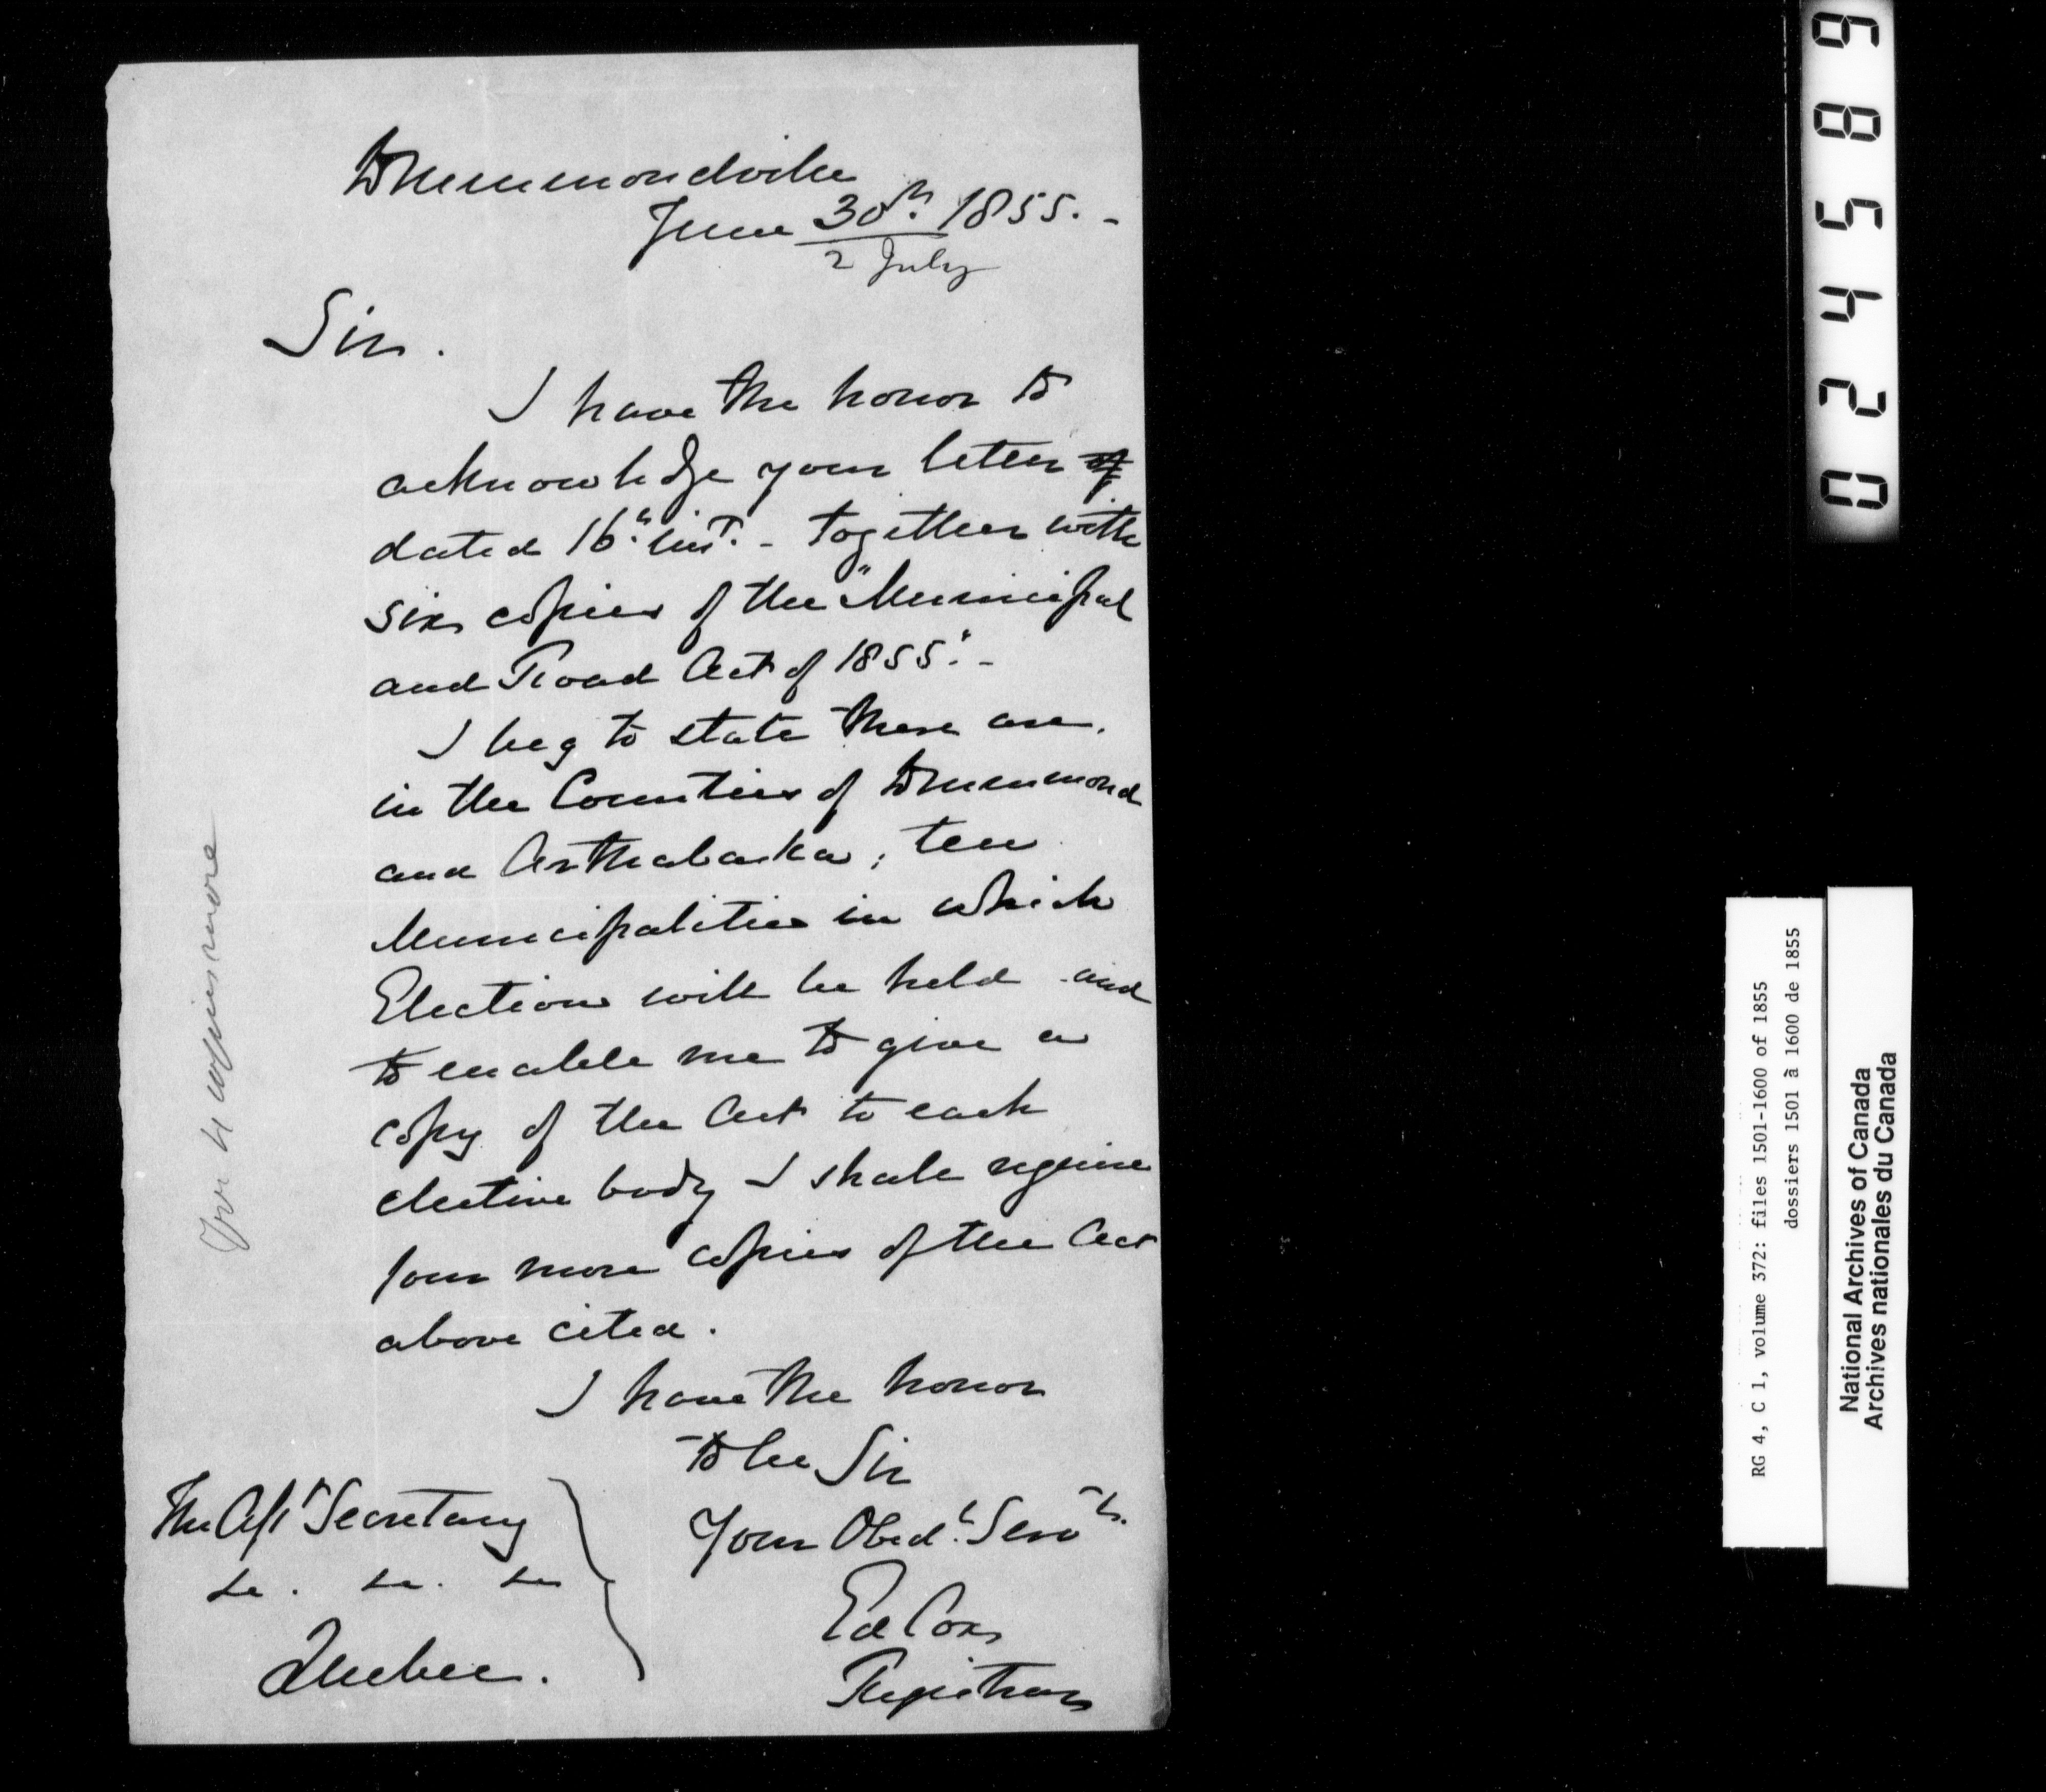 Drummondville
June 30th 1855. -
2 July
Sir.
I have the honor to
acknowledge your letter of
dated 16th inst. - together with
six copies of the "Municipal
and Road Act of 1855". -
I beg to state there are.
in the Counties of Drummond
and Arthabaska, ten
Municipalities in which
Elections will be held and
to enable me to give a
copy of the Act to each
elective body I shall require
four more copies of the Act
above cited.
I have the honor
to be Sir
Your Obedt. Servt.
Ed Cox
Registrar
The Asst Secretary
&c. &c. &c
Quebec.
For 4 copies more
024589
RG 4, C 1, volume 372: files 1501-1600 of 1855
dossiers 1501 à 1600 de 1855
National Archives of Canada
Archives nationales du Canada